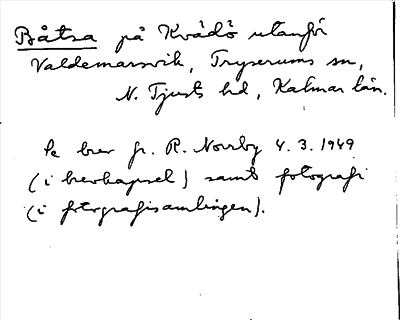 Båtsa på Kvädö utanför
Valdemarsvik, Tryserums sn,
N. Tjusts hd, Kalmar län.
Se brev fr. R. Norrby 4.3.1949
(i brevkapsel) samt fotografi
(i fotografisamlingen).